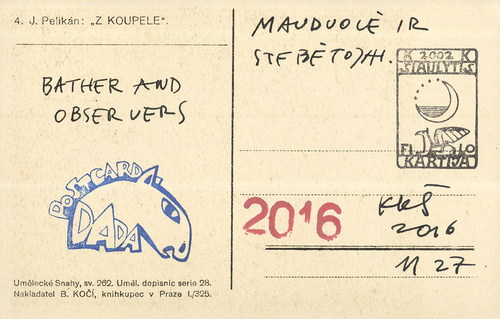 4. J. Pelikán: „Z KOUPELE".
BATHER AND
OBSERVERS
POSTCARDA
DADA
Umělecké Snahy, sv. 262. Uměl. dopisnic serie 28.
Nakladatel B. KOČÍ, knihkupec v Praze I./325.
MAUDUOLĖ IR
K 2002 K
ŠIAULYTIS
FI LO
KARTIJA
2016
KKŠ
2016
11 27